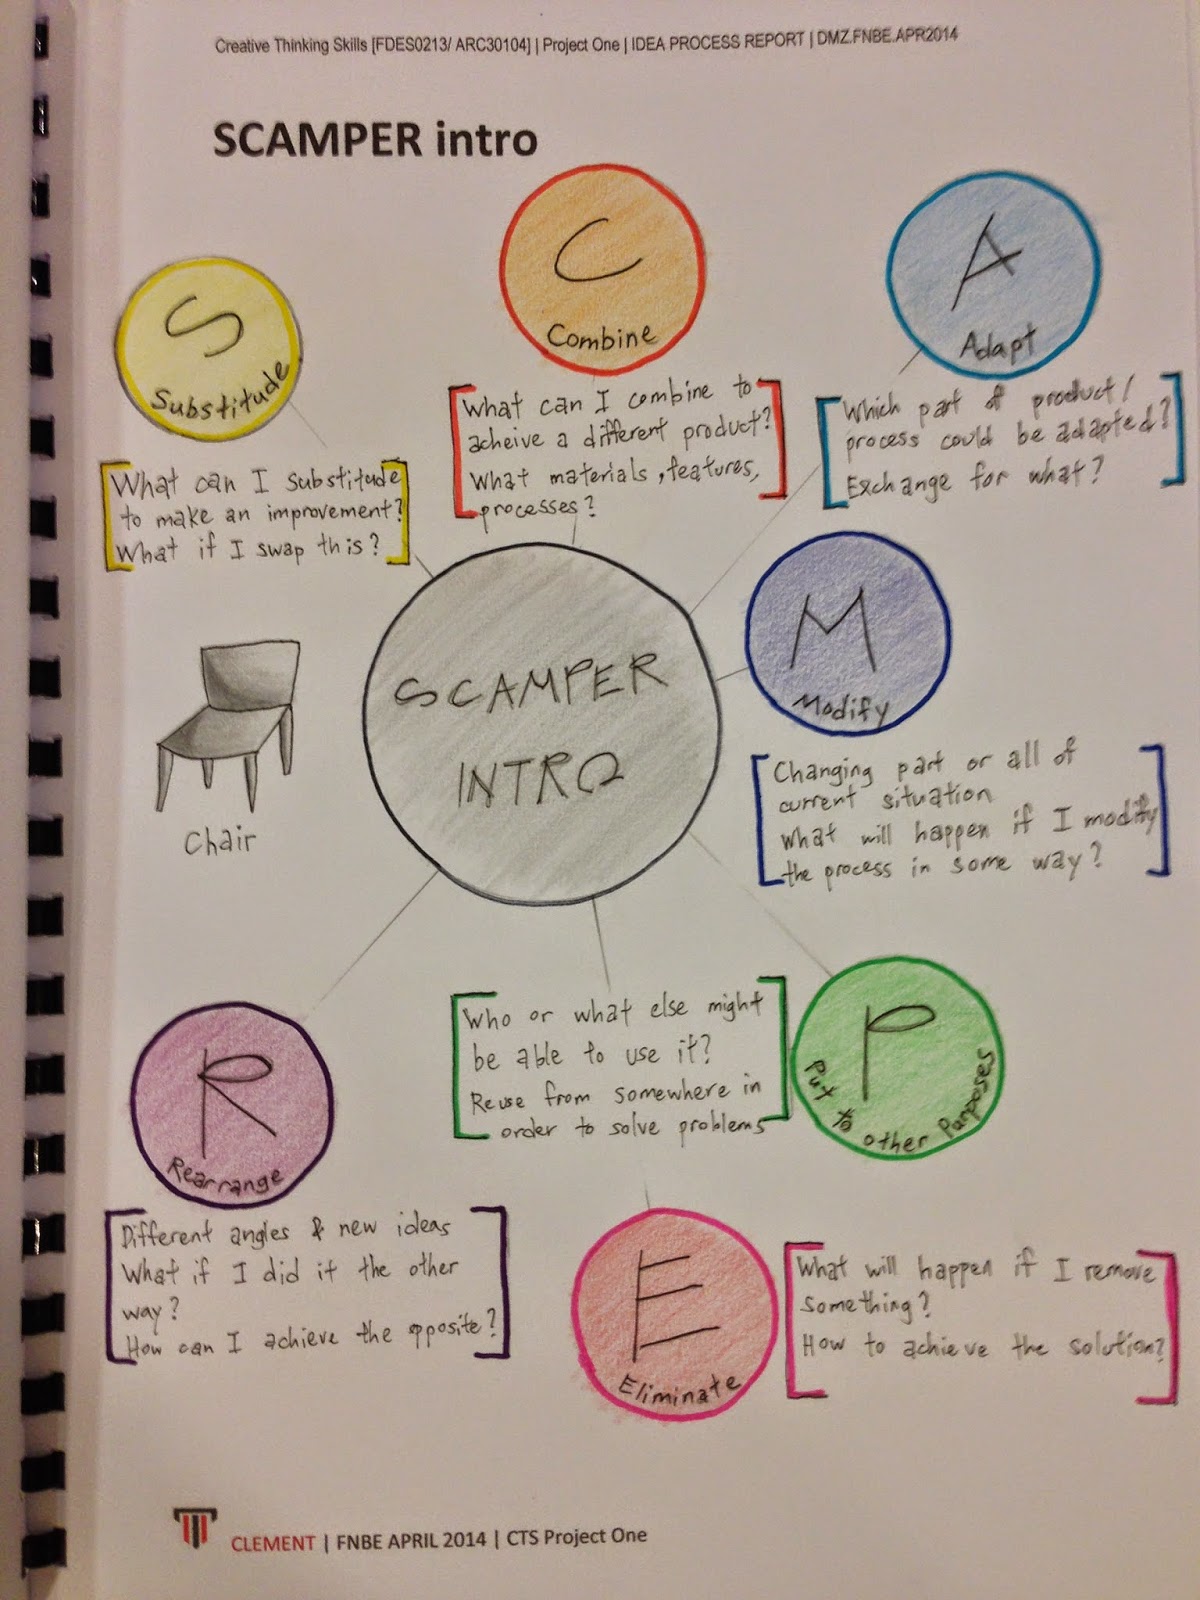 Creative Thinking Skills [FDES0213/ ARC30104] | Project One | IDEA PROCESS REPORT | DMZ.FNBE.APR2014
SCAMPER intro
S
Substitude
What can I substitude
to make an improvement?
What if I swap this?
C
Combine
What can I combine to
acheive a different product?
What materials, features,
processes?
A
Adapt
Which part of product/
process could be adapted?
Exchange for what?
M
Modify
Changing part or all of
current situation
What will happen if I modify
the process in some way?
SCAMPER
INTRO
Chair
P
Put to other Purposes
Who or what else might
be able to use it?
Reuse from somewhere in
order to solve problems
R
Rearrange
Different angles & new ideas
What if I did it the other
way?
How can I achieve the opposite?
E
Eliminate
What will happen if I remove
something?
How to achieve the solution?
CLEMENT | FNBE APRIL 2014 | CTS Project One